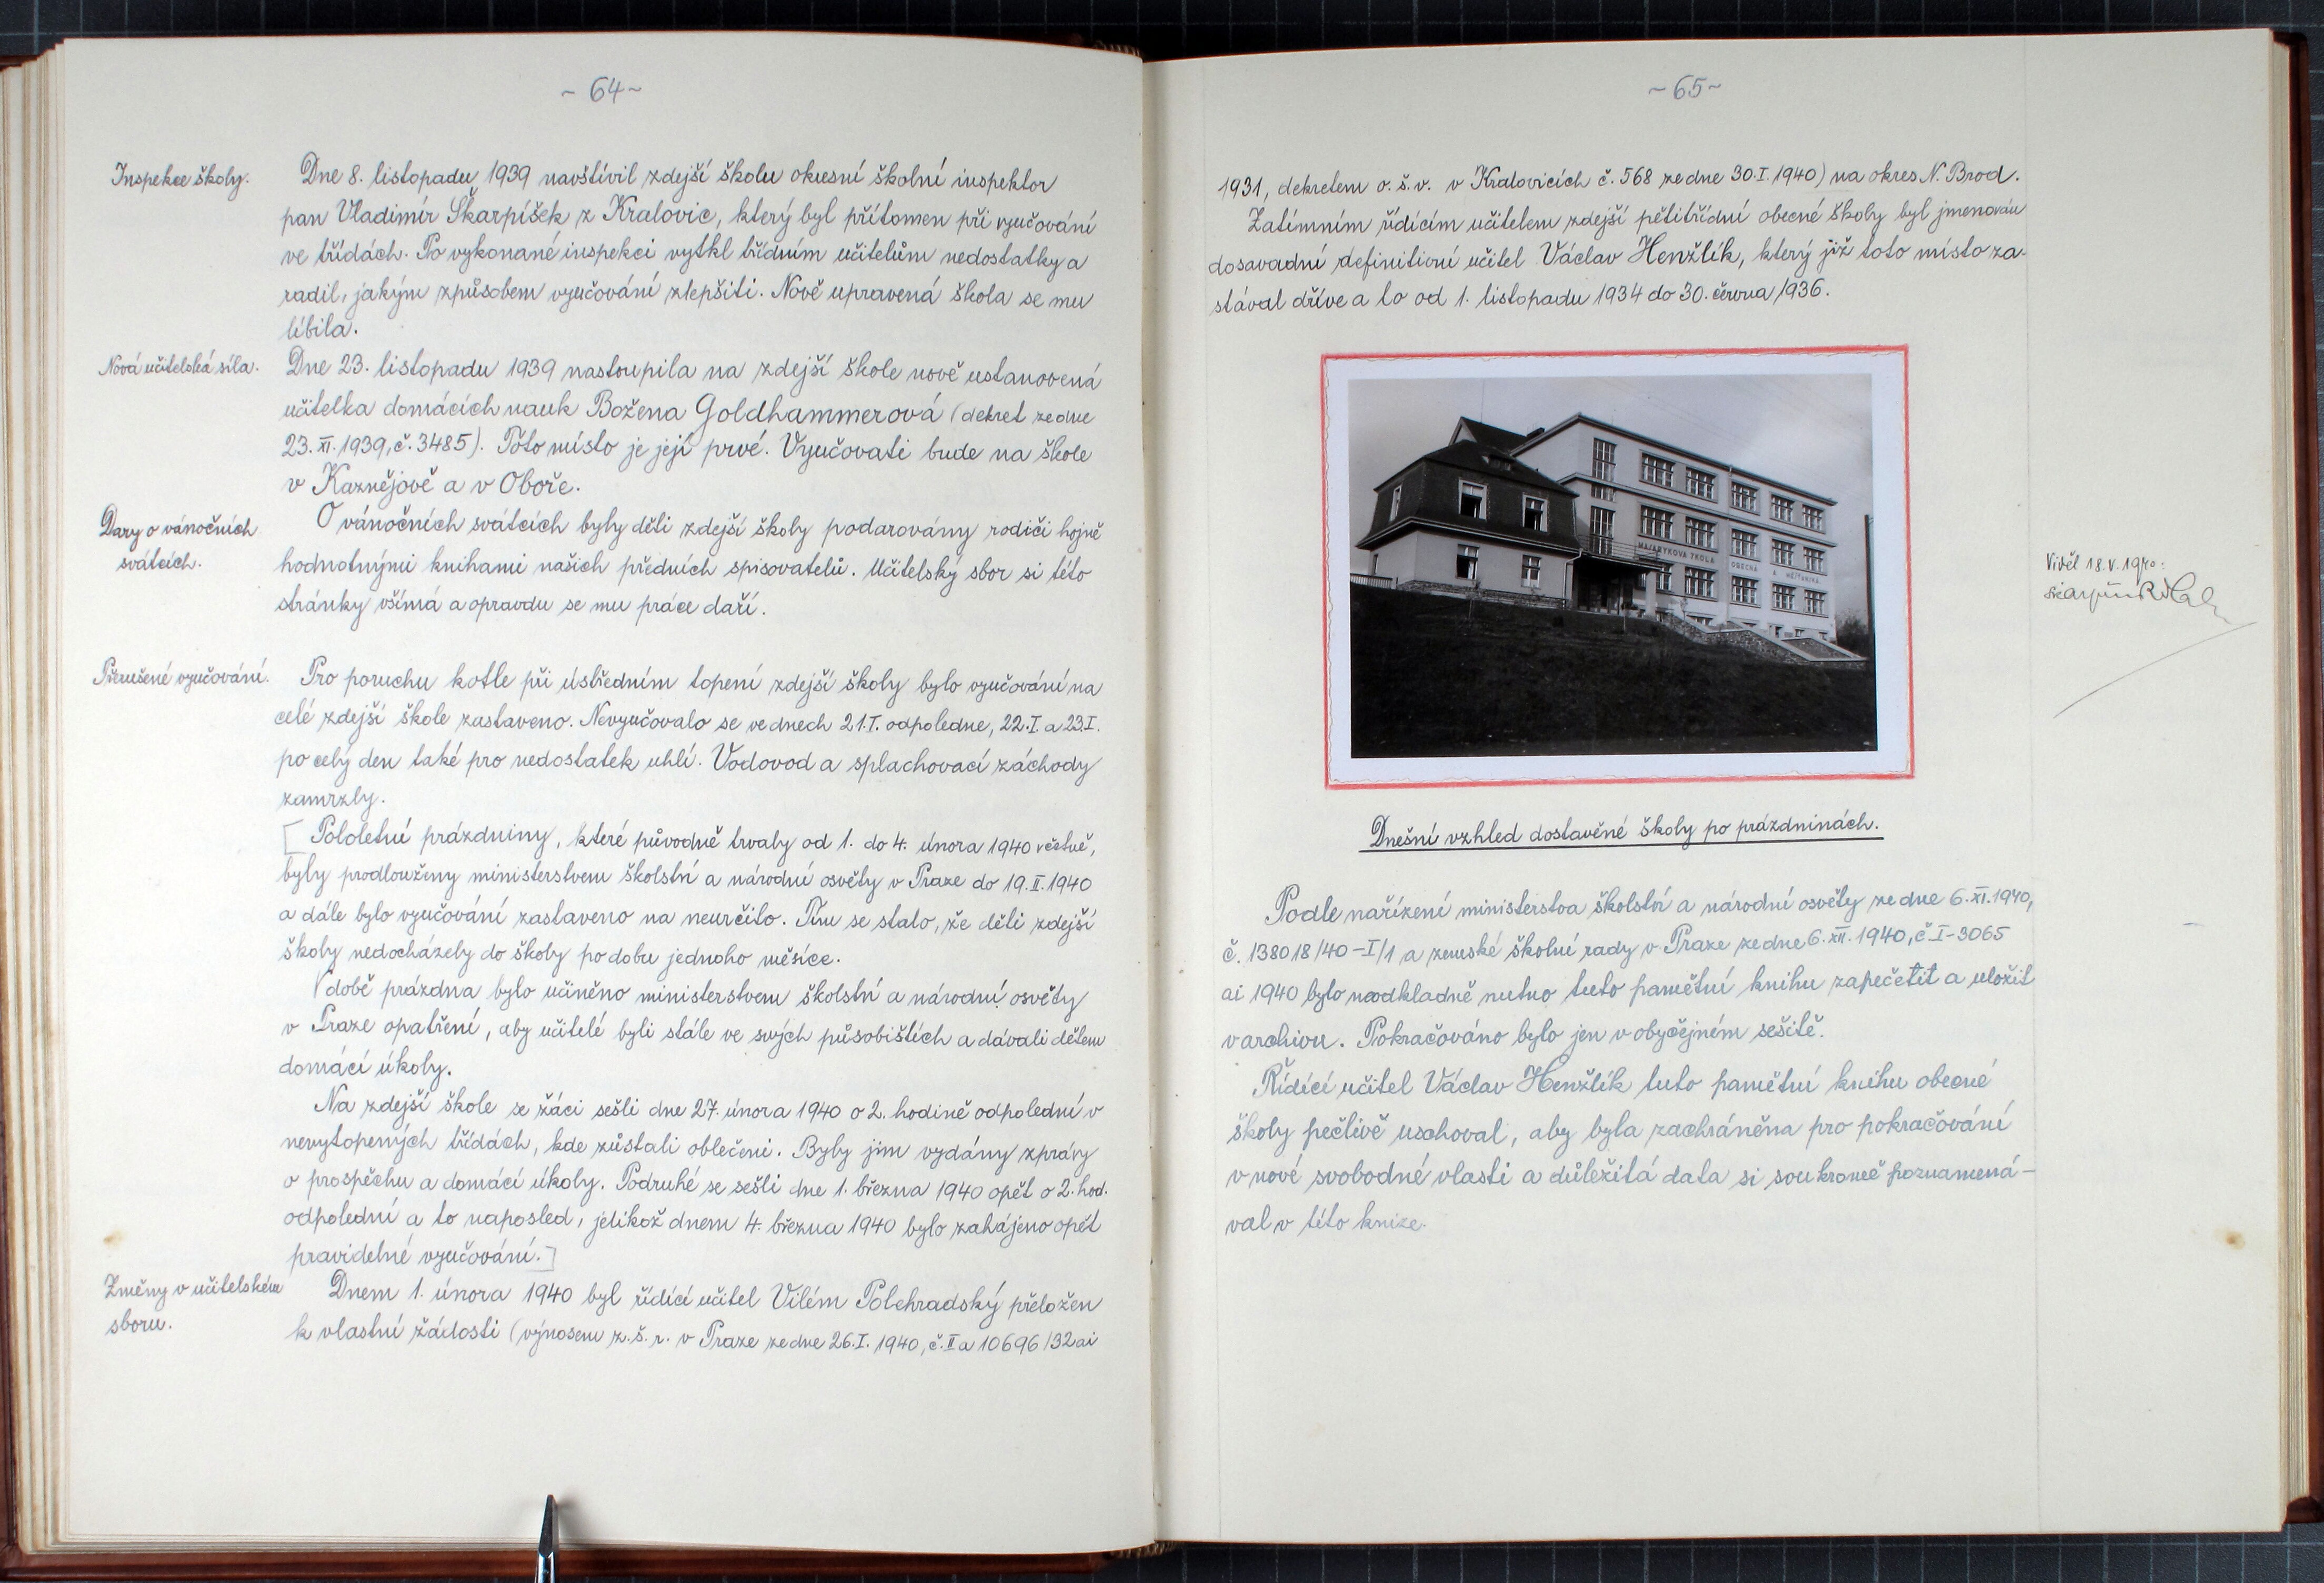 ~ 64 ~
Inspekce školy.
Dne 8. listopadu 1939 navštívil zdejší školu okresní školní inspektor
pan Vladimír Škarpíšek z Kralovic, který byl přítomen při vyučování
ve třídách. Po vykonané inspekci vytkl třídním učitelům nedostatky a
radil, jakým způsobem vyučování zlepšiti. Nově upravená škola se mu
líbila.
Nová učitelská síla.
Dne 23. listopadu 1939 nastoupila na zdejší škole nově ustanovená
učitelka domácích nauk Božena Goldhammerová (dekret ze dne
23. XI. 1939, č. 3485). Toto místo je její prvé. Vyučovati bude na škole
v Kaznějově a v Oboře.
Dary o vánočních
svátcích.
O vánočních svátcích byly děti zdejší školy podarovány rodiči hojně
hodnotnými knihami našich předních spisovatelů. Učitelský sbor si této
stránky všímá a opravdu se mu práce daří.
Přerušené vyučování.
Pro poruchu kotle při ústředním topení zdejší školy bylo vyučování na
celé zdejší škole zastaveno. Nevyučovalo se ve dnech 21.I. odpoledne, 22.I. a 23.I.
po celý den také pro nedostatek uhlí. Vodovod a splachovací záchody
zamrzly.
[ Pololetní prázdniny, které původně trvaly od 1. do 4. února 1940 včetně,
byly prodlouženy ministerstvem školství a národní osvěty v Praze do 19. II. 1940
a dále bylo vyučování zastaveno na neurčito. Tím se stalo, že děti zdejší
školy nedocházely do školy po dobu jednoho měsíce.
V době prázdna bylo učiněno ministerstvem školství a národní osvěty
v Praze opatření, aby učitelé byli stále ve svých působištích a dávali dětem
domácí úkoly.
Na zdejší škole se žáci sešli dne 27. února 1940 o 2. hodině odpolední v
nevytopených třídách, kde zůstali oblečeni. Byly jim vydány zprávy
o prospěchu a domácí úkoly. Podruhé se sešli dne 1. března 1940 opět o 2. hod.
odpolední a to naposled, jelikož dnem 4. března 1940 bylo zahájeno opět
pravidelné vyučování. ]
Změny v učitelském
sboru.
Dnem 1. února 1940 byl řídící učitel Vilém Polehradský přeložen
k vlastní žádosti (výnosem z. š. r. v Praze ze dne 26. I. 1940, č. II a 10696/32 ai
~ 65 ~
1931, dekretem o. š. v. v Kralovicích č. 568 ze dne 30. I. 1940) na okres N. Brod.
Zatímním řídícím učitelem zdejší pětitřídní obecné školy byl jmenován
dosavadní definitivní učitel Václav Henžlík, který již toto místo za-
stával dříve a to od 1. listopadu 1934 do 30. června 1936.
MASARYKOVA ŠKOLA OBECNÁ A MĚŠŤANSKÁ
Viděl 18. V. 1940:
Dnešní vzhled dostavěné školy po prázdninách.
Podle nařízení ministerstva školství a národní osvěty ze dne 6. XI. 1940,
č. 138018/40-I/1 a zemské školní rady v Praze ze dne 6. XII. 1940, č. I-3065
ai 1940 bylo neodkladně nutno tuto pamětní knihu zapečetit a uložit
v archivu. Pokračováno bylo jen v obyčejném sešitě.
Řídící učitel Václav Henžlík tuto pamětní knihu obecné
školy pečlivě uschoval, aby byla zachráněna pro pokračování
v nové svobodné vlasti a důležitá data si soukromě poznamená-
val v této knize.